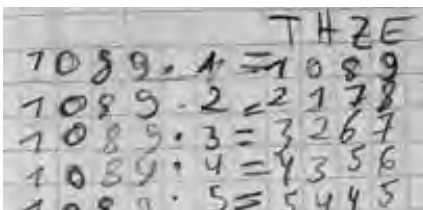 T H Z E
1089 · 1 = 1089
1089 · 2 = 2178
1089 · 3 = 3267
1089 · 4 = 4356
1089 · 5 = 5445